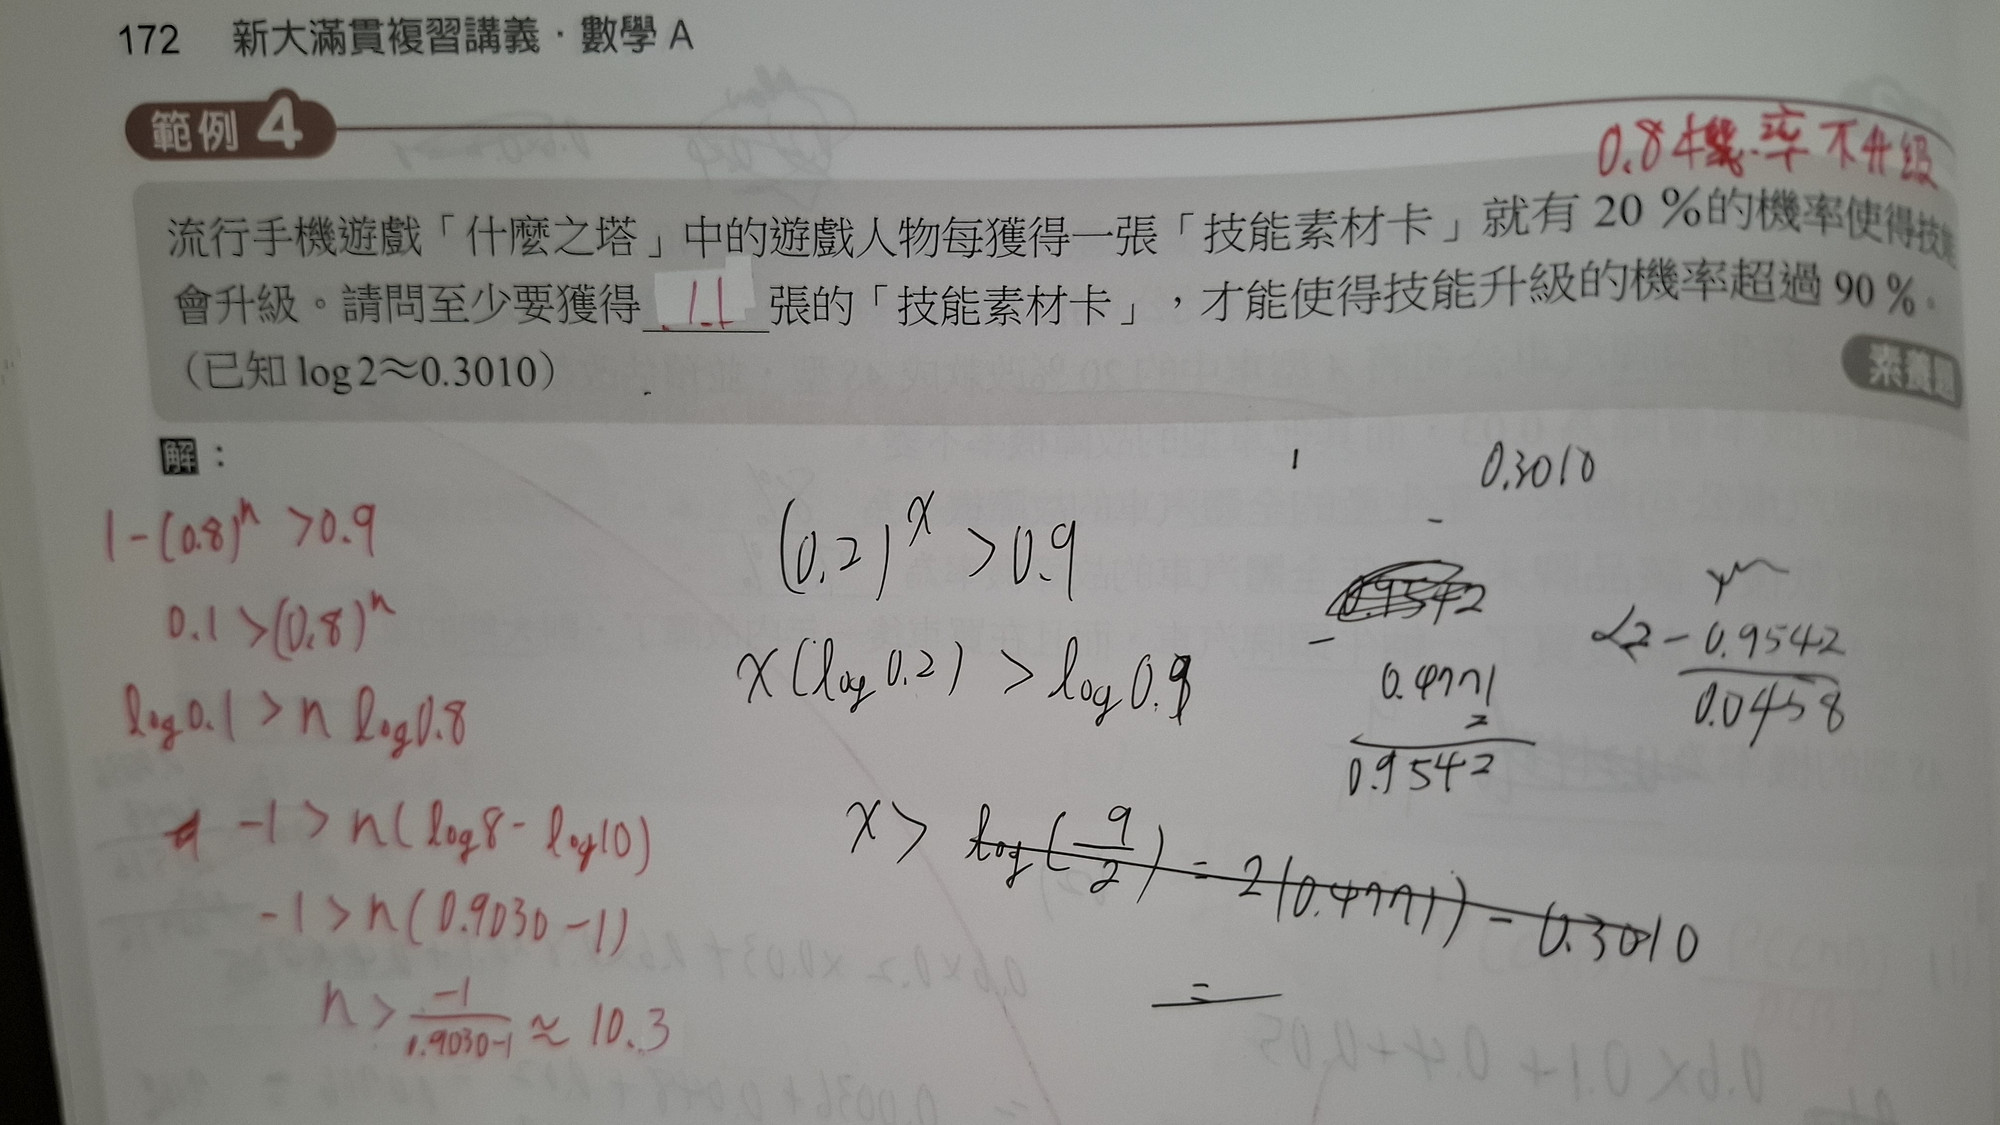 172 新大滿貫複習講義．數學 A
範例 4
0.8 機率不升級
流行手機遊戲「什麼之塔」中的遊戲人物每獲得一張「技能素材卡」就有 20 %的機率使得技能
會升級。請問至少要獲得 11 張的「技能素材卡」，才能使得技能升級的機率超過 90 %。
（已知 log 2≈0.3010）
素養題
解：
1-(0.8)^n >0.9
0.1 >(0.8)^n
log0.1 > n log0.8
-1 > n( log8 - log10)
-1 > n( 0.9030 -1)
n > -1/0.9030-1 ≈ 10.3
(0.2)^x >0.9
x(log 0.2) > log 0.9
x > log(9/2) = 2(0.4771) - 0.3010
=
0.3010
-
0.9542
-
0.4771
2
0.9542
- 0.9542
0.0458